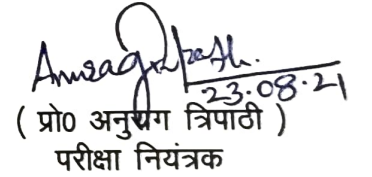 Anurag Tripathi.
23.08.21
( प्रो0 अनुराग त्रिपाठी )
परीक्षा नियंत्रक